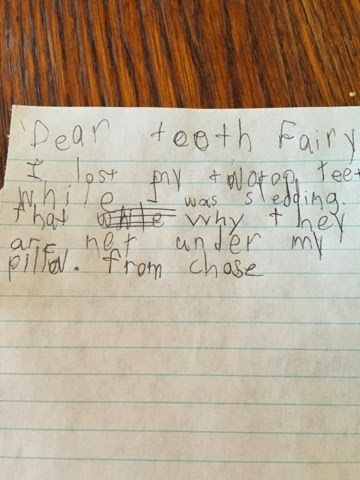 Dear teeth Fairy
I lost my twatop teet
While I was sledding.
that why they
are net under my
pillow. from chase